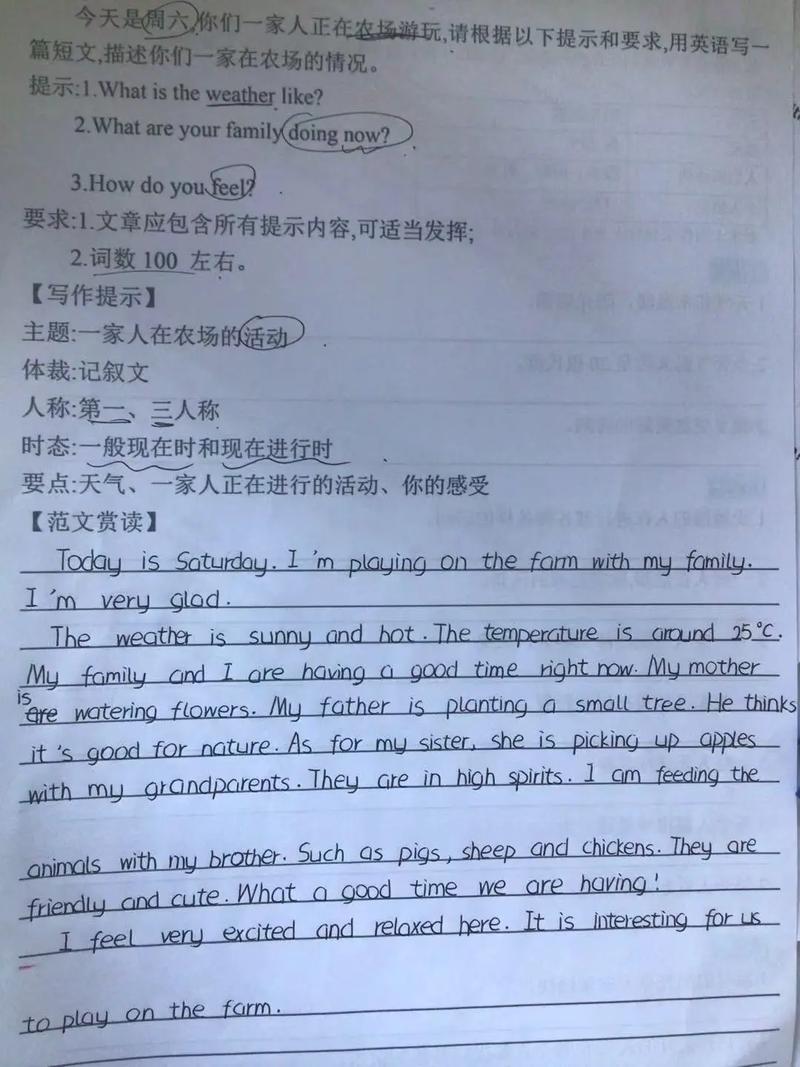 今天是周六,你们一家人正在农场游玩,请根据以下提示和要求,用英语写一
篇短文,描述你们一家在农场的情况。
提示:1.What is the weather like?
2.What are your family doing now?
3.How do you feel?
要求:1.文章应包含所有提示内容,可适当发挥;
2.词数 100 左右。
【写作提示】
主题:一家人在农场的活动
体裁:记叙文
人称:第一、三人称
时态:一般现在时和现在进行时
要点:天气、一家人正在进行的活动、你的感受
【范文赏读】
Today is Saturday. I 'm playing on the farm with my family.
I 'm very glad.
The weather is sunny and hot. The temperature is around 25℃.
My family and I are having a good time right now. My mother
is
are watering flowers. My father is planting a small tree. He thinks
it 's good for nature. As for my sister, she is picking up apples
with my grandparents. They are in high spirits. I am feeding the
animals with my brother. Such as pigs, sheep and chickens. They are
friendly and cute. What a good time we are having!
I feel very excited and relaxed here. It is interesting for us
to play on the farm.